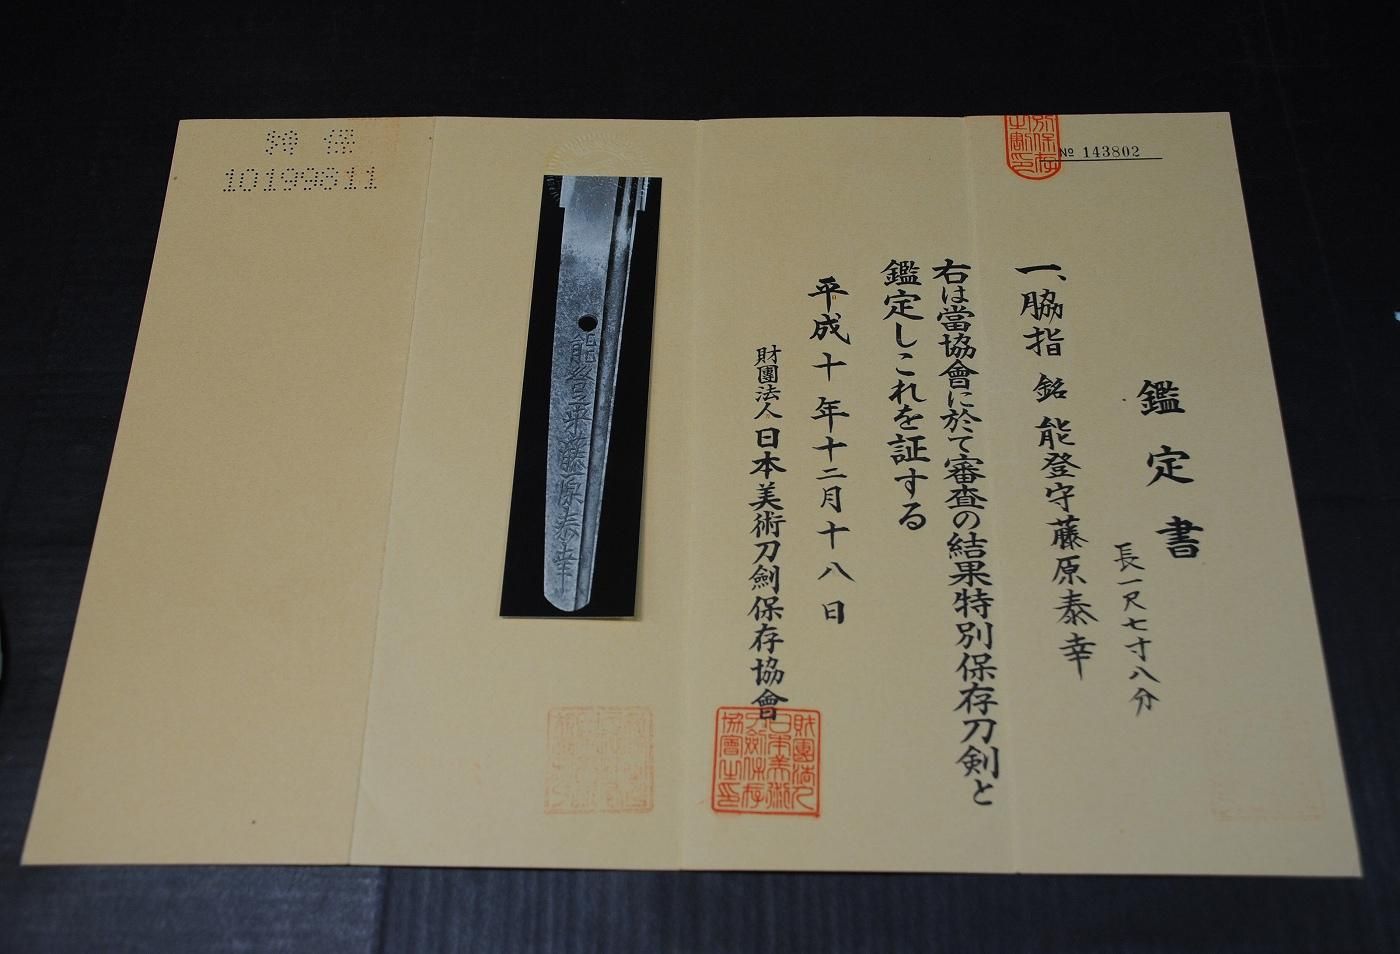 № 143802
鑑定書
一、脇指 銘 能登守藤原泰幸
長一尺七寸八分
右は當協會に於て審査の結果特別保存刀剣と
鑑定しこれを証する
平成十年十二月十八日
財團法人日本美術刀劍保存協會
財團法人日本美術刀劍保存協會之印
能登守藤原泰幸
特保
10199811